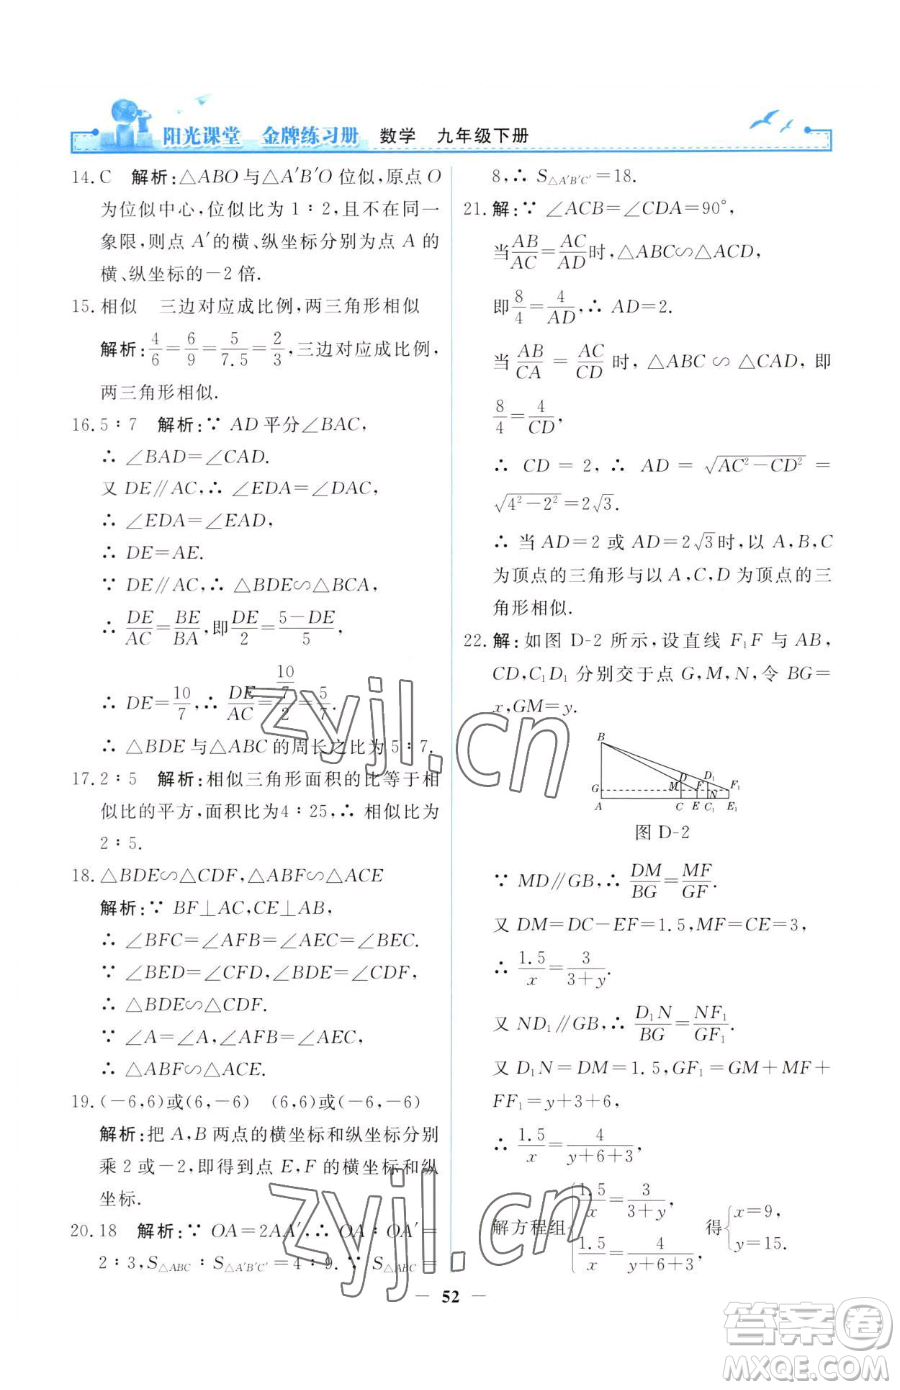 阳光课堂 金牌练习册 数学 九年级下册
14.C 解析:△ABO与△A′B′O位似,原点O
为位似中心,位似比为1∶2,且不在同一
象限,则点A′的横、纵坐标分别为点A的
横、纵坐标的-2倍.
15.相似 三边对应成比例,两三角形相似
解析:4/6=6/9=5/7.5=2/3,三边对应成比例,
两三角形相似.
16.5∶7 解析:∵ AD平分∠BAC,
∴ ∠BAD=∠CAD.
又DE∥AC,∴ ∠EDA=∠DAC,
∴ ∠EDA=∠EAD,
∴ DE=AE.
∵ DE∥AC,∴ △BDE∽△BCA,
∴ DE/AC=BE/BA,即DE/2=(5-DE)/5,
∴ DE=10/7,∴ DE/AC=(10/7)/2=5/7.
∴ △BDE与△ABC的周长之比为5∶7.
17.2∶5 解析:相似三角形面积的比等于相
似比的平方,面积比为4∶25,∴ 相似比为
2∶5.
18.△BDE∽△CDF,△ABF∽△ACE
解析:∵ BF⊥AC,CE⊥AB,
∴ ∠BFC=∠AFB=∠AEC=∠BEC.
∵ ∠BED=∠CFD,∠BDE=∠CDF,
∴ △BDE∽△CDF.
∵ ∠A=∠A,∠AFB=∠AEC,
∴ △ABF∽△ACE.
19.(-6,6)或(6,-6) (6,6)或(-6,-6)
解析:把A,B两点的横坐标和纵坐标分别
乘2或-2,即得到点E,F的横坐标和纵
坐标.
20.18 解析:∵ OA=2AA′,∴ OA∶OA′=
2∶3,S△ABC∶S△A′B′C′=4∶9.∵ S△ABC=
8,∴ S△A′B′C′=18.
21.解:∵ ∠ACB=∠CDA=90°,
当AB/AC=AC/AD时,△ABC∽△ACD,
即8/4=4/AD,∴ AD=2.
当AB/CA=AC/CD时,△ABC∽△CAD,即
8/4=4/CD,
∴ CD=2,∴ AD=√(AC²-CD²)=
√(4²-2²)=2√3.
∴ 当AD=2或AD=2√3时,以A,B,C
为顶点的三角形与以A,C,D为顶点的三
角形相似.
22.解:如图D-2所示,设直线F₁F与AB,
CD,C₁D₁分别交于点G,M,N,令BG=
x,GM=y.
B
D D₁
G M F N F₁
A C E C₁ E₁
图D-2
∵ MD∥GB,∴ DM/BG=MF/GF.
又DM=DC-EF=1.5,MF=CE=3,
∴ 1.5/x=3/(3+y).
又ND₁∥GB,∴ D₁N/BG=NF₁/GF₁.
又D₁N=DM=1.5,GF₁=GM+MF+
FF₁=y+3+6,
∴ 1.5/x=4/(y+6+3),
解方程组{1.5/x=3/(3+y), 1.5/x=4/(y+6+3), 得{x=9, y=15.
52
zyjl.cn
zyjl.cn
答案圈
MXQE.COM